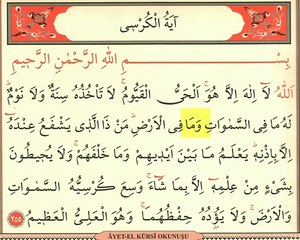 آيَةُ الْكُرْسِى
بِسْــــــــمِ اللّٰهِ الرَّحْمٰنِ الرَّحِيمِ
اَللّٰهُ لَآ اِلٰهَ اِلَّا هُوَۚ اَلْحَىُّ الْقَيُّومُۚ لَا تَأْخُذُهُ سِنَةٌ وَلَا نَوْمٌۜ
لَهُ مَا فِى السَّمٰوَاتِ وَمَا فِى الْاَرْضِۜ مَنْ ذَا الَّذِى يَشْفَعُ عِنْدَهُٓ
اِلَّا بِاِذْنِهِۜ يَعْلَمُ مَا بَيْنَ اَيْدِيهِمْ وَمَا خَلْفَهُمْۚ وَلَا يُحِيطُونَ
بِشَىْءٍ مِنْ عِلْمِهِٓ اِلَّا بِمَا شَٓاءَۚ وَسِعَ كُرْسِيُّهُ السَّمٰوَاتِ
وَالْاَرْضَۚ وَلَا يَؤُ۫دُهُ حِفْظُهُمَاۚ وَهُوَ الْعَلِىُّ الْعَظِيمُ ﴿٢٥٥﴾
ÂYET-EL KÜRSİ OKUNUŞU